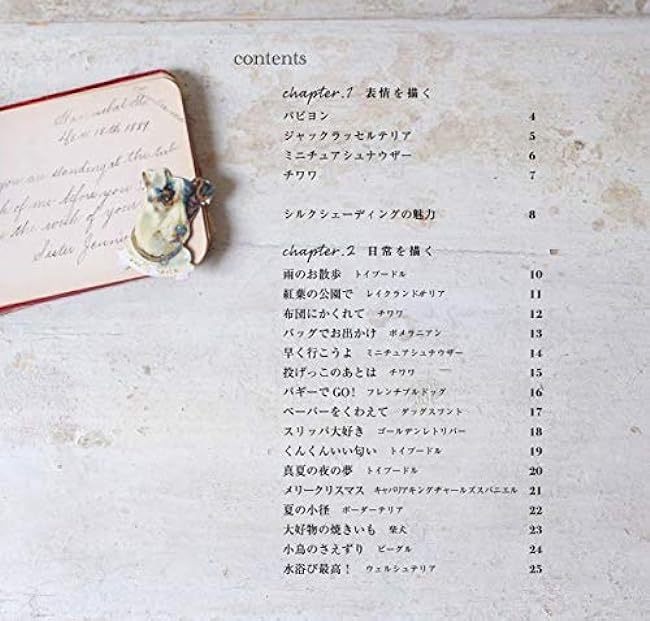 contents
chapter.1 表情を描く
パピヨン 4
ジャックラッセルテリア 5
ミニチュアシュナウザー 6
チワワ 7
シルクシェーディングの魅力 8
chapter.2 日常を描く
雨のお散歩 トイプードル 10
紅葉の公園で レイクランドテリア 11
布団にかくれて チワワ 12
バッグでお出かけ ポメラニアン 13
早く行こうよ ミニチュアシュナウザー 14
投げっこのあとは チワワ 15
バギーでGO! フレンチブルドッグ 16
ペーパーをくわえて ダックスフント 17
スリッパ大好き ゴールデンレトリバー 18
くんくんいい匂い トイプードル 19
真夏の夜の夢 トイプードル 20
メリークリスマス キャバリアキングチャールズスパニエル 21
夏の小径 ボーダーテリア 22
大好物の焼きいも 柴犬 23
小鳥のさえずり ビーグル 24
水浴び最高! ウェルシュテリア 25
18th 1889
you are standing at the tub
of me before you
the week of your
Sister Jennie